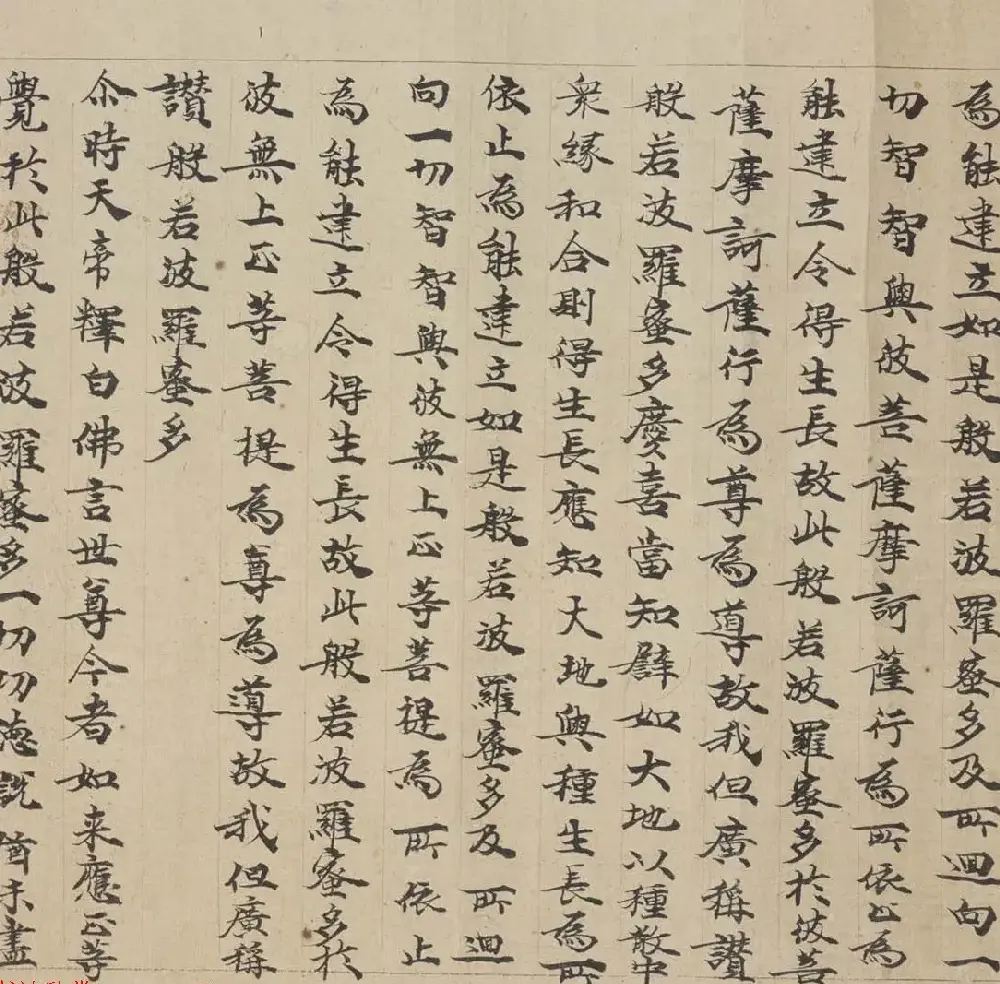 為能建立如是般若波羅蜜多及所迴向一
切智智與彼菩薩摩訶薩行為所依止為
能建立令得生長故此般若波羅蜜多於彼菩
薩摩訶薩行為尊為導故我但廣稱讚
般若波羅蜜多慶喜當知譬如大地以種散中
衆緣和合則得生長應知大地與種生長為所
依止為能建立如是般若波羅蜜多及所迴
向一切智智與彼無上正等菩提為所依止
為能建立令得生長故此般若波羅蜜多於
彼無上正等菩提為尊為導故我但廣稱
讚般若波羅蜜多
尒時天帝釋白佛言世尊今者如来應正等
覺於此般若波羅蜜多一切功德說猶未盡